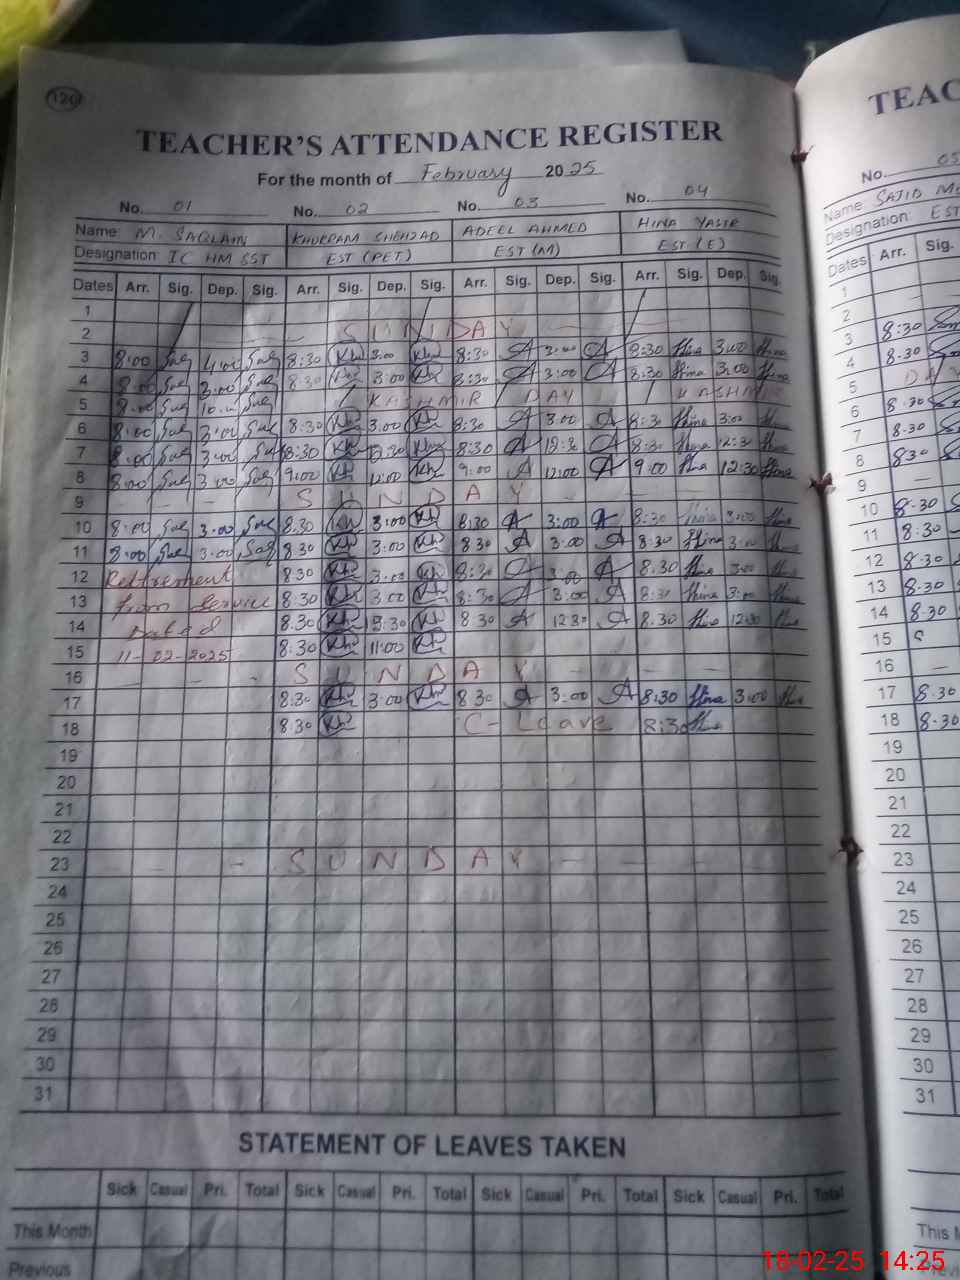 120
TEACHER'S ATTENDANCE REGISTER
For the month of February 2025
No. 01 No. 02 No. 03 No. 04
Name: M. SAQLAIN KHURRAM SHEHZAD ADEEL AHMED HINA YASIR
Designation IC HM SST EST (PET) EST (M) EST (E)
Dates Arr. Sig. Dep. Sig. Arr. Sig. Dep. Sig. Arr. Sig. Dep. Sig. Arr. Sig. Dep. Sig.
1
2 SUNDAY
3 8:00 Saq Saq 8:30 3:00 8:30 A 3:00 A 8:30 Hina 3:00 Hina
4 8:00 Saq 3:00 Saq 8:30 3:00 8:30 A 3:00 A 8:30 Hina 3:00 Hina
5 8:00 Saq Saq KASHMIR DAY KASHMIR
6 8:00 Saq 3:00 Saq 8:30 3:00 8:30 A 3:00 A 8:30 Hina 3:00 Hina
7 8:00 Saq 3:00 Saq 8:30 8:30 A 12:30 A 8:30 Hina 12:30 Hina
8 8:00 Saq 3:00 Saq 9:00 12:00 9:00 A 12:00 A 9:00 Hina 12:30 Hina
9 - - - SUNDAY - - -
10 8:00 Saq 3:00 Saq 8:30 3:00 8:30 A 3:00 A 8:30 Hina 3:00 Hina
11 8:00 Saq 3:00 Saq 8:30 3:00 8:30 A 3:00 A 8:30 Hina 3:00 Hina
12 Retirement 8:30 3:00 8:30 A 3:00 A 8:30 Hina 3:00 Hina
13 from Service 8:30 3:00 8:30 A 3:00 A 8:30 Hina 3:00 Hina
14 Dated 8:30 8:30 A 12:30 A 8:30 Hina 12:30 Hina
15 11-02-2025 8:30 11:00
16 - - - SUNDAY - - -
17 8:30 3:00 8:30 A 3:00 A 8:30 Hina 3:00 Hina
18 8:30 C-Leave 8:30 Hina
19
20
21
22
23 - - - SUNDAY - - -
24
25
26
27
28
29
30
31
STATEMENT OF LEAVES TAKEN
Sick Casual Pri. Total Sick Casual Pri. Total Sick Casual Pri. Total Sick Casual Pri. Total
This Month
Previous
TEAC
No. 05
Name: SAJID
Designation: EST
Dates Arr. Sig.
1
2
3 8:30
4 8:30
5 DAY
6 8:30
7 8:30
8 8:30
9 -
10 8:30
11 8:30
12 8:30
13 8:30
14 8:30
15 S
16 -
17 8:30
18 8:30
19
20
21
22
23
24
25
26
27
28
29
30
31
This M
Previ
18-02-25 14:25